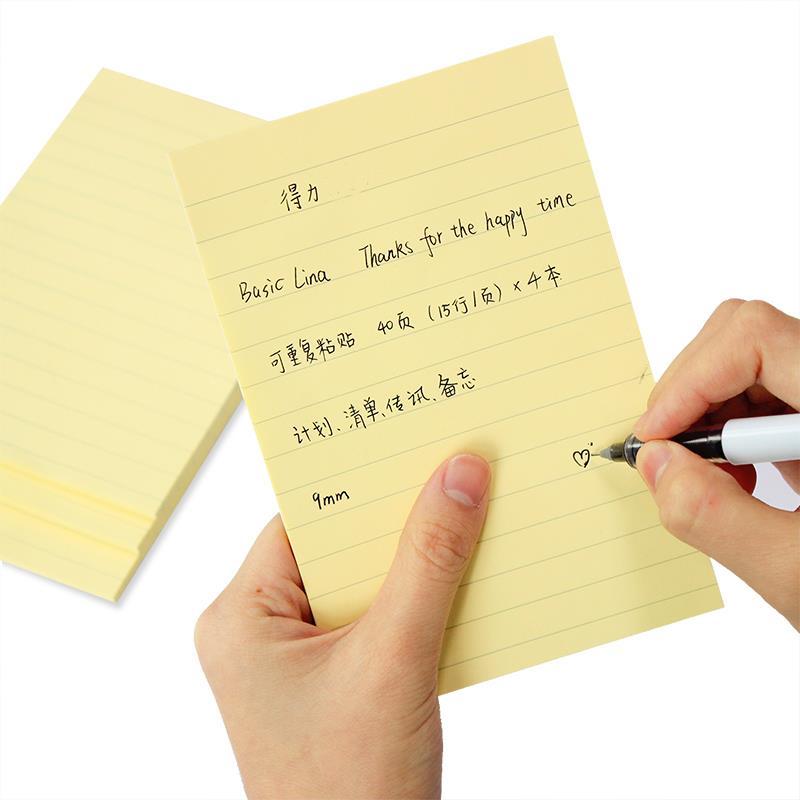 得力
Basic Lina Thanks for the happy time
可重复粘贴 40页（15行/页）×4本
计划、清单、传讯、备忘
9mm